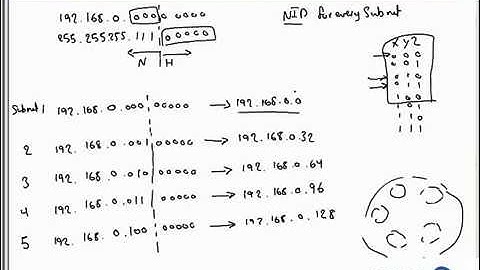 192.168.0.000 00000
255.255.255.111 00000
N H
NID for every Subnet
x y z
0 0 0
0 0 1
0 1 0
0 1 1
1 0 0
1 0 1
1 1 0
1 1 1
Subnet 1 192.168.0.000 00000 → 192.168.0.0
2 192.168.0.001 00000 → 192.168.0.32
3 192.168.0.010 00000 → 192.168.0.64
4 192.168.0.011 00000 → 192.168.0.96
5 192.168.0.100 00000 → 192.168.0.128